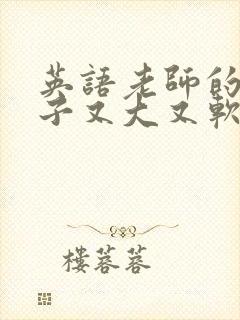 英語老師的
子又大又軟
樓蓉蓉